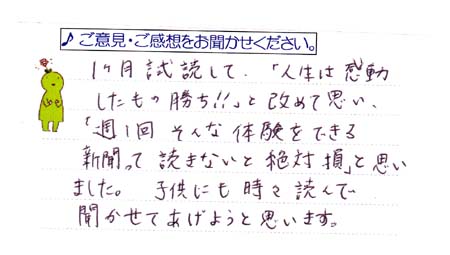 ♪ご意見・ご感想をお聞かせください。
1ヶ月試読して、「人生は感動
したもの勝ち!!」と改めて思い、
「週1回 そんな体験をできる
新聞って読まないと絶対損」と思い
ました。 子供にも時々読んで
聞かせてあげようと思います。